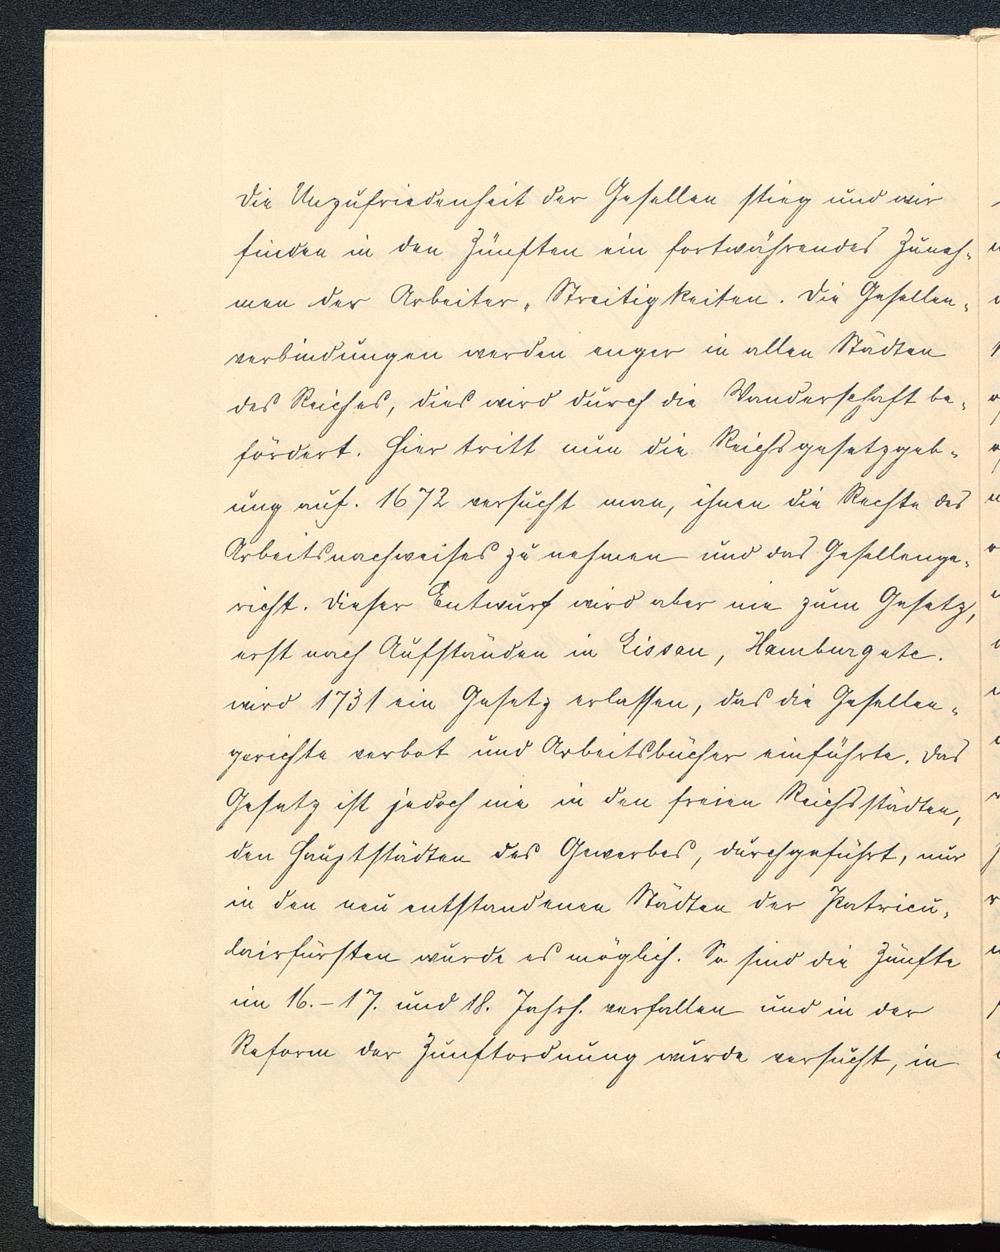 Die Unzufriedenheit der Gesellen stieg und wir
finden in den Zünften ein fortwährendes Zuneh-
men der Arbeiter-Streitigkeiten. Die Gesellen-
verbindungen werden enger in allen Städten
des Reiches, dies wird durch die Wanderschaft be-
fördert. Hier tritt nun die Reichsgesetzgeb-
ung auf. 1672 versucht man, ihnen die Rechte des
Arbeitsnachweises zu nehmen und das Gesellenge-
richt. Dieser Entwurf wird aber nie zum Gesetz,
erst nach Aufständen in Lissau, Hamburg etc.
wird 1731 ein Gesetz erlassen, das die Gesellen-
gerichte verbot und Arbeitsbücher einführte. Das
Gesetz ist jedoch nie in den freien Reichsstädten,
den Hauptstädten des Gewerbes, durchgeführt, nur
in den neu entstandenen Städten der
wurde es möglich. So sind die Zünfte
im 16.-17. und 18. Jahrh. verfallen und in der
Reform der Zunftordnung wurde versucht, in